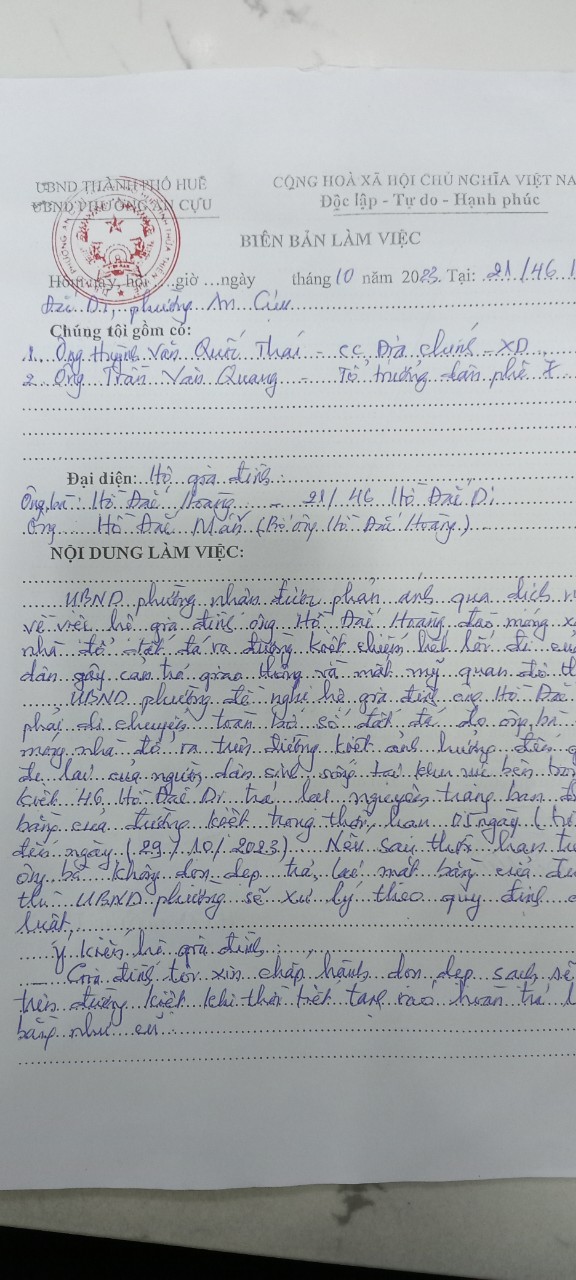 UBND THÀNH PHỐ HUẾ
UBND PHƯỜNG AN CỰU
CỘNG HOÀ XÃ HỘI CHỦ NGHĨA VIỆT NA
Độc lập - Tự do - Hạnh phúc
BIÊN BẢN LÀM VIỆC
Hôm nay, hồi ....giờ ...ngày tháng 10 năm 2023. Tại: 21/46
Đắc Di, phường An Cựu
Chúng tôi gồm có:
1. Ông Huỳnh Văn Quốc Thái - CC Địa chính - XD
2. Ông Trần Văn Quang - Tổ trưởng dân phố 7
Đại diện: Hộ gia đình
Ông, bà: Hồ Đắc Hoàng - 21/46 Hồ Đắc Di
Ông Hồ Đắc Mẫn (Bố ông Hồ Đắc Hoàng)
NỘI DUNG LÀM VIỆC:
UBND phường nhận được phản ánh qua dịch
về việc hộ gia đình ông Hồ Đắc Hoàng đào móng
nhà đổ đất đá ra đường kiệt chiếm hết lối đi
dân gây cản trở giao thông và mất mỹ quan đô th
UBND phường đề nghị hộ gia đình ông Hồ Đắc
phải di chuyển toàn bộ số đất đá do ông bà
móng nhà đổ ra trên đường kiệt ảnh hưởng đến
đi lại của người dân sinh sống tại khu vực bên
kiệt 46 Hồ Đắc Di trả lại nguyên trạng ban
bằng của đường kiệt trong thời hạn 05 ngày
đến ngày (29/10/2023). Nếu sau thời hạn
ông bà không dọn dẹp trả lại mặt bằng của
thì UBND phường sẽ xử lý theo quy định
luật.
Ý kiến hộ gia đình:
Gia đình tôi xin chấp hành dọn dẹp sạch sẽ
trên đường kiệt khi thời tiết tạnh ráo hoàn trả
bằng như cũ.